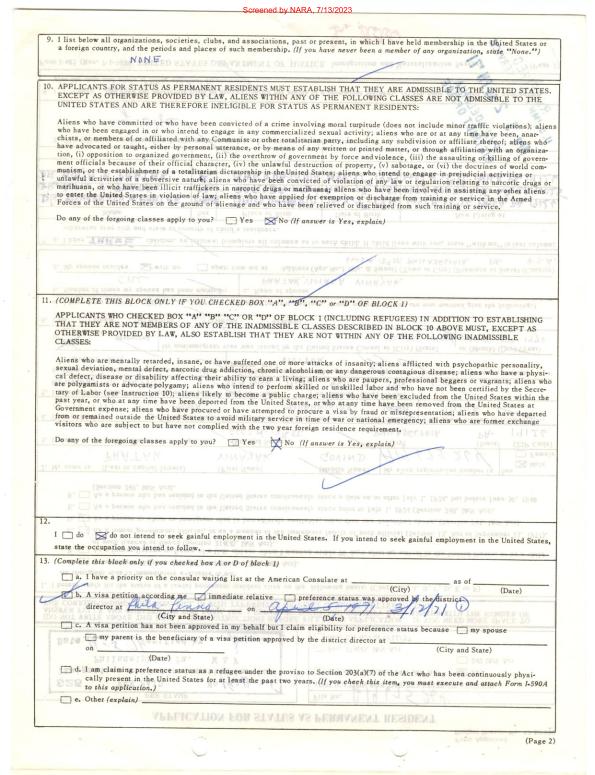 Screened by NARA, 7/13/2023
9. I list below all organizations, societies, clubs, and associations, past or present, in which I have held membership in the United States or
a foreign country, and the periods and places of such membership. (If you have never been a member of any organization, state "None.")
NONE
10. APPLICANTS FOR STATUS AS PERMANENT RESIDENTS MUST ESTABLISH THAT THEY ARE ADMISSIBLE TO THE UNITED STATES.
EXCEPT AS OTHERWISE PROVIDED BY LAW, ALIENS WITHIN ANY OF THE FOLLOWING CLASSES ARE NOT ADMISSIBLE TO THE
UNITED STATES AND ARE THEREFORE INELIGIBLE FOR STATUS AS PERMANENT RESIDENTS:
Aliens who have committed or who have been convicted of a crime involving moral turpitude (does not include minor traffic violations); aliens
who have been engaged in or who intend to engage in any commercialized sexual activity; aliens who are or at any time have been, anar-
chists, or members of or affiliated with any Communist or other totalitarian party, including any subdivision or affiliate thereof; aliens who
have advocated or taught, either by personal utterance, or by means of any written or printed matter, or through affiliation with an organiza-
tion, (i) opposition to organized government, (ii) the overthrow of government by force and violence, (iii) the assaulting or killing of govern-
ment officials because of their official character, (iv) the unlawful destruction of property, (v) sabotage, or (vi) the doctrines of world com-
munism, or the establishment of a totalitarian dictatorship in the United States; aliens who intend to engage in prejudicial activities or
unlawful activities of a subversive nature; aliens who have been convicted of violation of any law or regulation relating to narcotic drugs or
marihuana, or who have been illicit traffickers in narcotic drugs or marihuana; aliens who have been involved in assisting any other aliens
to enter the United States in violation of law; aliens who have applied for exemption or discharge from training or service in the Armed
Forces of the United States on the ground of alienage and who have been relieved or discharged from such training or service.
Do any of the foregoing classes apply to you? Yes No (If answer is Yes, explain)
11. (COMPLETE THIS BLOCK ONLY IF YOU CHECKED BOX "A", "B", "C" or "D" OF BLOCK 1)
APPLICANTS WHO CHECKED BOX "A" "B" "C" OR "D" OF BLOCK 1 (INCLUDING REFUGEES) IN ADDITION TO ESTABLISHING
THAT THEY ARE NOT MEMBERS OF ANY OF THE INADMISSIBLE CLASSES DESCRIBED IN BLOCK 10 ABOVE MUST, EXCEPT AS
OTHERWISE PROVIDED BY LAW, ALSO ESTABLISH THAT THEY ARE NOT WITHIN ANY OF THE FOLLOWING INADMISSIBLE
CLASSES:
Aliens who are mentally retarded, insane, or have suffered one or more attacks of insanity; aliens afflicted with psychopathic personality,
sexual deviation, mental defect, narcotic drug addiction, chronic alcoholism or any dangerous contagious disease; aliens who have a physi-
cal defect, disease or disability affecting their ability to earn a living; aliens who are paupers, professional beggars or vagrants; aliens who
are polygamists or advocate polygamy; aliens who intend to perform skilled or unskilled labor and who have not been certified by the Secre-
tary of Labor (see Instruction 10); aliens likely to become a public charge; aliens who have been excluded from the United States within the
past year, or who at any time have been deported from the United States, or who at any time have been removed from the United States at
Government expense; aliens who have procured or have attempted to procure a visa by fraud or misrepresentation; aliens who have departed
from or remained outside the United States to avoid military service in time of war or national emergency; aliens who are former exchange
visitors who are subject to but have not complied with the two year foreign residence requirement.
Do any of the foregoing classes apply to you? Yes No (If answer is Yes, explain)
12.
I do do not intend to seek gainful employment in the United States. If you intend to seek gainful employment in the United States,
state the occupation you intend to follow.
13. (Complete this block only if you checked box A or D of block 1)
a. I have a priority on the consular waiting list at the American Consulate at as of
(City) (Date)
b. A visa petition according me immediate relative preference status was approved by the district
director at Phila Penna on April 5 1971 3/12/71 1
(City and State) (Date)
c. A visa petition has not been approved in my behalf but I claim eligibility for preference status because my spouse
my parent is the beneficiary of a visa petition approved by the district director at
on (City and State)
(Date)
d. I am claiming preference status as a refugee under the proviso to Section 203(a)(7) of the Act who has been continuously physi-
cally present in the United States for at least the past two years. (If you check this item, you must execute and attach Form I-590A
to this application.)
e. Other (explain)
(Page 2)